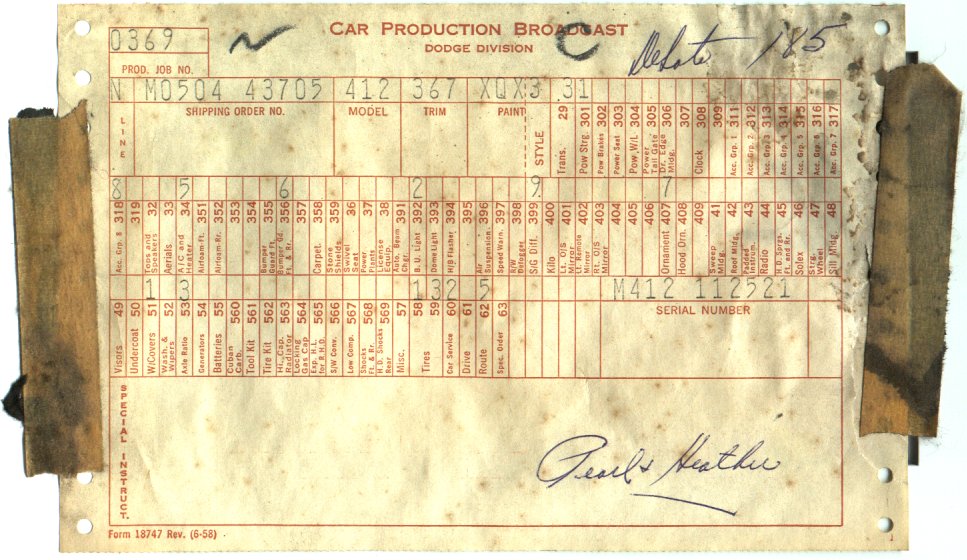 CAR PRODUCTION BROADCAST
DODGE DIVISION
0369
PROD. JOB NO.
C
DeSoto 185
N M0504 43705 412 367 XQX3 31
LINE
SHIPPING ORDER NO. MODEL TRIM PAINT
STYLE
Trans. 29
Pow Strg. 301
Pow Brakes 302
Power Seat 303
Pow. W/L 304
Power Tail Gate 305
Dr. Edge Mldg. 306
307
Clock 308
309
Acc. Grp. 1 311
Acc. Grp. 2 312
Acc. Grp. 3 313
Acc. Grp. 4 314
Acc. Grp. 5 315
Acc. Grp. 6 316
Acc. Grp. 7 317
8 5 6 2 9 7
Acc. Grp. 8 318
319
Tops and Speakers 32
Aerials 33
A/C and Heater 34
Airfoam-Ft. 351
Airfoam-Rr. 352
353
354
Bumper Guard Ft. 355
Bumper Gd. Ft. & Rr. 356
357
Carpet 358
Stone Shields 359
Swivel Seat 36
Power Plants 37
License Equip. 38
Auto. Beam Chgr. 391
B. U. Light 392
Dome Light 393
H/B Flasher 394
395
Air Suspension 396
Speed Warn. 397
R/W Defogger 398
S/G Diff. 399
Kilo 400
Lt. O/S Mirror 401
Lt. Remote Mirror 402
Rt. O/S Mirror 403
404
405
406
Ornament 407
Hood Orn. 408
409
Sweep Mldg. 41
Roof Mldg. 42
Padded Instrum. 43
Radio 44
H.D. Sprgs. Ft. and Rr. 45
Solex 46
Strg. Wheel 47
Sill Mldg. 48
1 3 132 5 M412 112521
Visors 49
Undercoat 50
W/Covers 51
Wash. & Wipers 52
Axle Ratio 53
Generators 54
Batteries 55
Cuban Carb. 560
Tool Kit 561
Tire Kit 562
Hi. Cap. Radiator 563
Locking Gas Cap 564
Exp. H.L. for R.H.D. 565
S/W Conv. 566
Low Comp. 567
Shocks Ft. & Rr. 568
H.D. Shocks Rear Only 569
Misc. 57
58
Tires 59
Car Service 60
Drive 61
Route 62
Spec. Order 63
SERIAL NUMBER
SPECIAL INSTRUCT.
Pearl & Heather
Form 18747 Rev. (6-58)